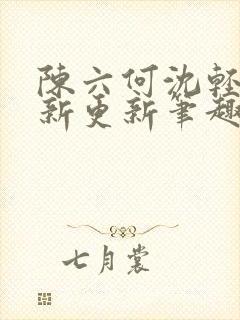 陳六何沈輕
新更新筆趣
七月裳